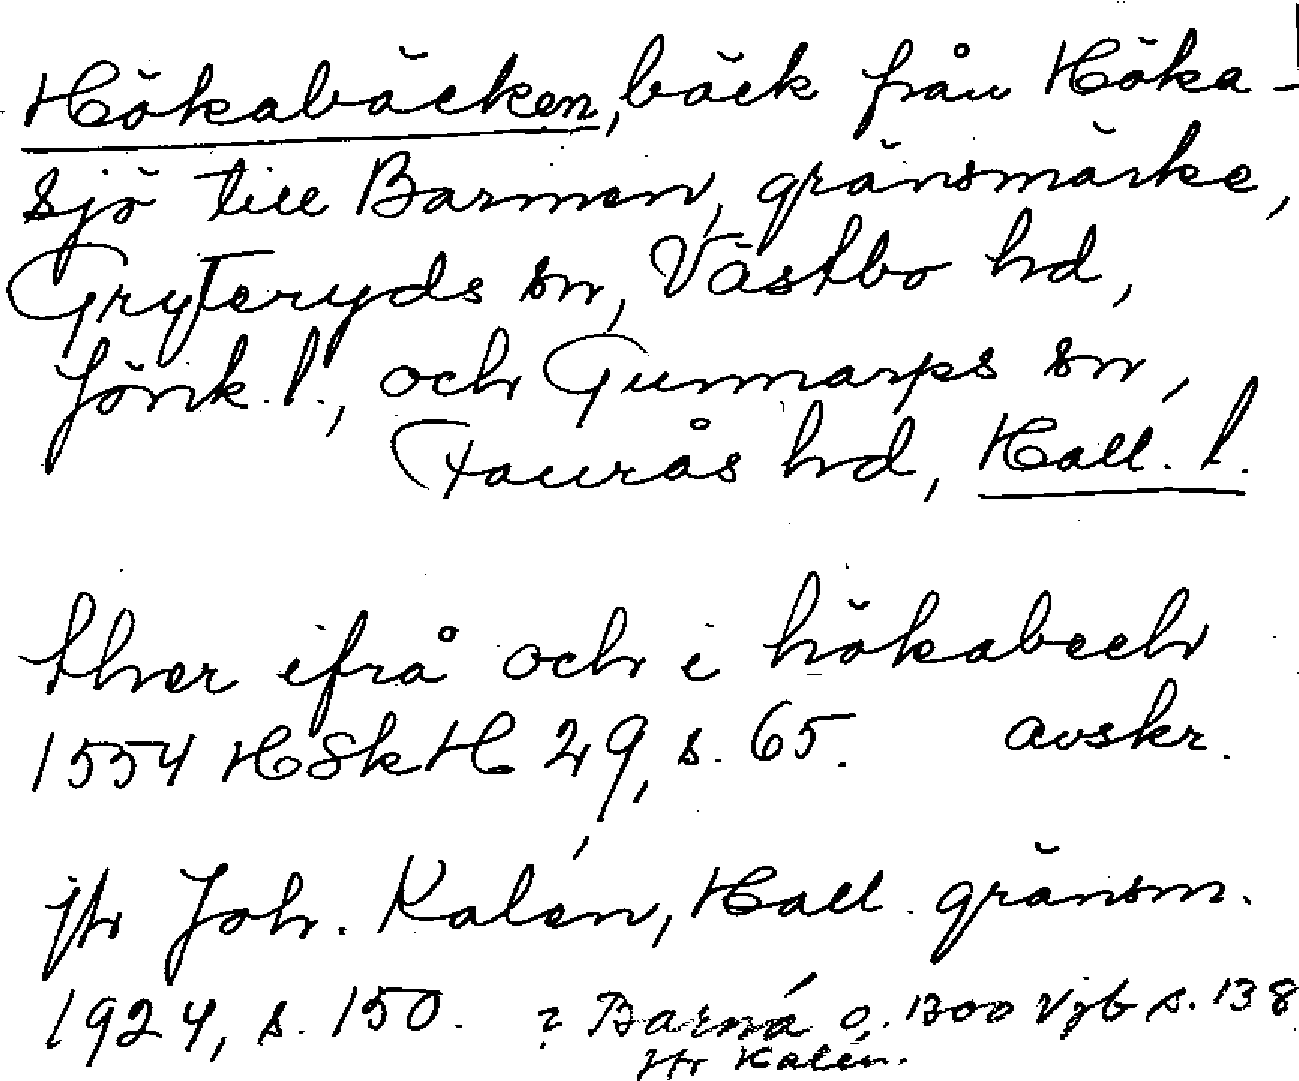 Hökabäcken, bäck från Höka-
sjö till Barmen, gränsmärke,
Gryteryds sn, Västbo hd,
Jönk. l., och Gunnarps sn,
Faurås hd, Hall. l.
ther ifrå och i hökabech
1554 HSkH 29, s. 65. avskr.
jfr Joh. Kalén, Hall. gränsm.
1924, s. 150. ? Barná o. 1300 Vjb s. 138
jfr Kalén.